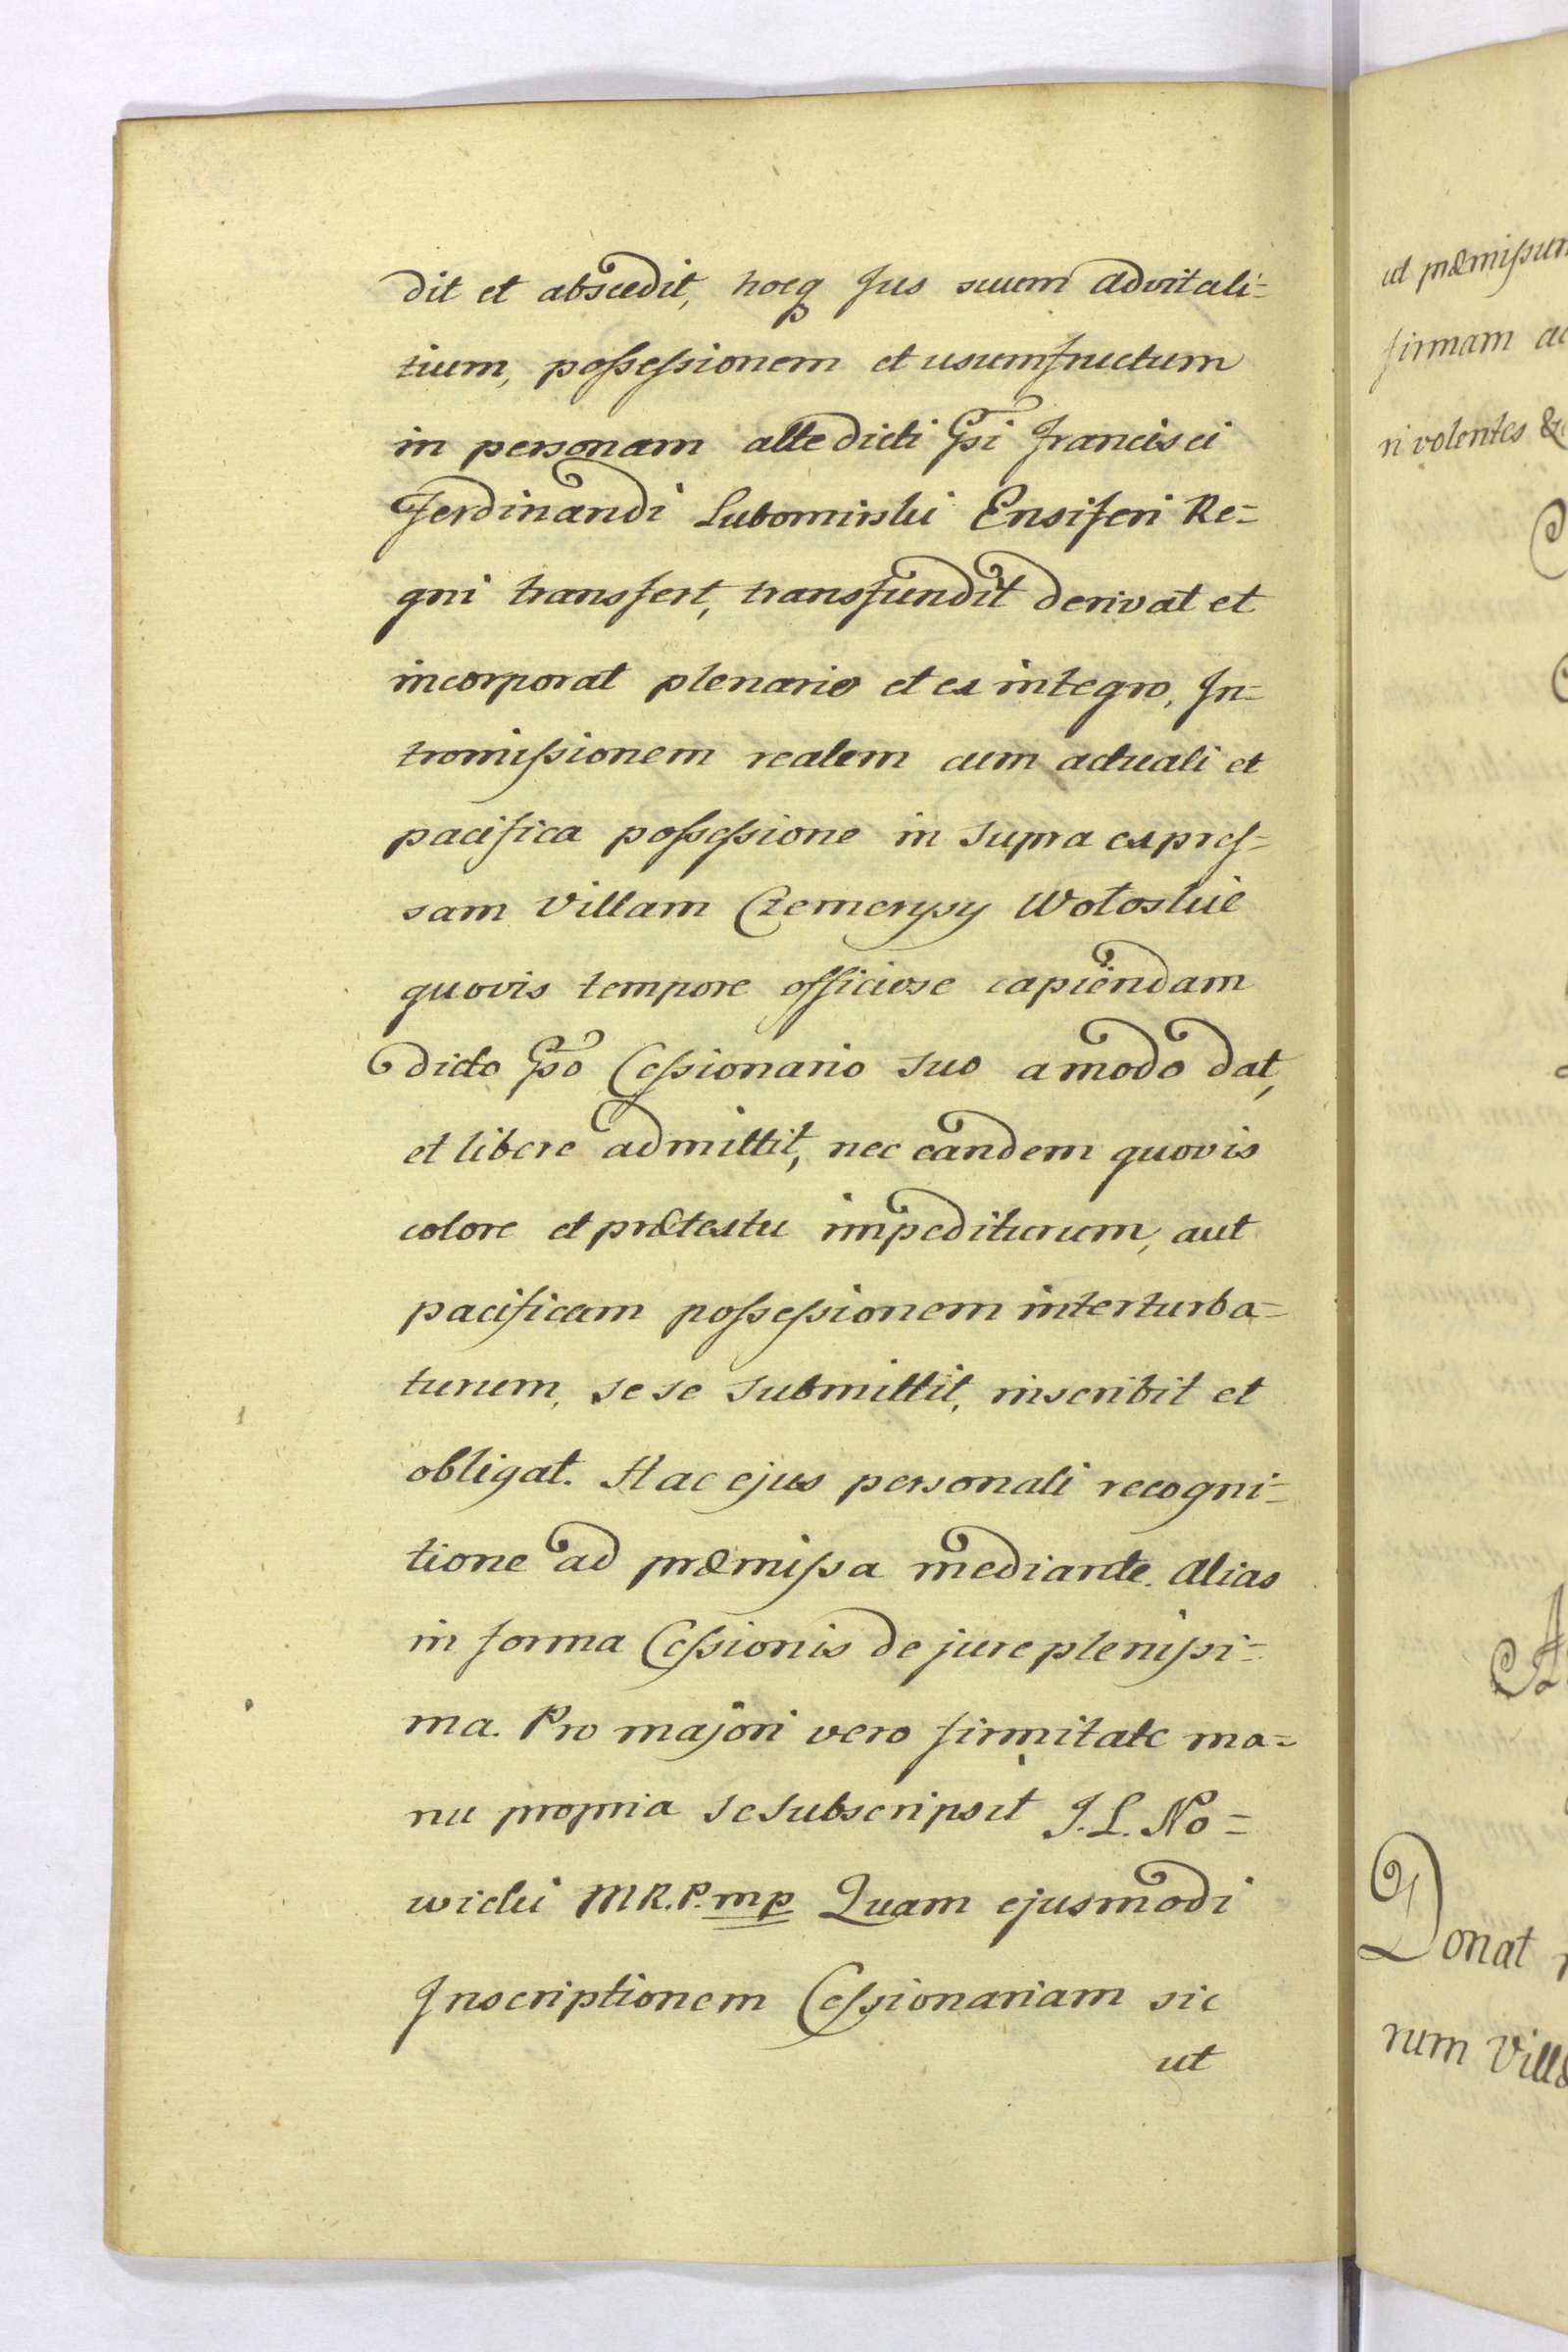 dit et abscedit, hocq Jus suum advitali=
tium, possessionem et usumfructum
in personam alte dicti Gsi Francisci
Ferdinandi Lubomirski Ensiferi Re=
gni transfert, transfundit derivat et
incorporat plenarie et ex integro, In=
tromissionem realem cum actuali et
pacifica possessione in supra expres=
sam Villam Czemerysy Wołoskie
quovis tempore officiose capiendam
dicto Gso Cessionario suo amodo dat,
et libere admittit, nec eandem quovis
colore et prætextu impediturum, aut
pacificam possessionem interturba=
turum, sese submittit, inscribit et
obligat. Hac ejus personali recogni=
tione ad præmissa mediante. Alias
in forma Cessionis de jure plenissi=
ma. Pro majori vero firmitate ma=
nu propria se subscripsit J. L. No=
wicki M R. P. mp Quam ejusmodi
Inscriptionem Cessionariam sic
ut
ut præmissum
firmam
ri volentes
Donat
rum Villæ